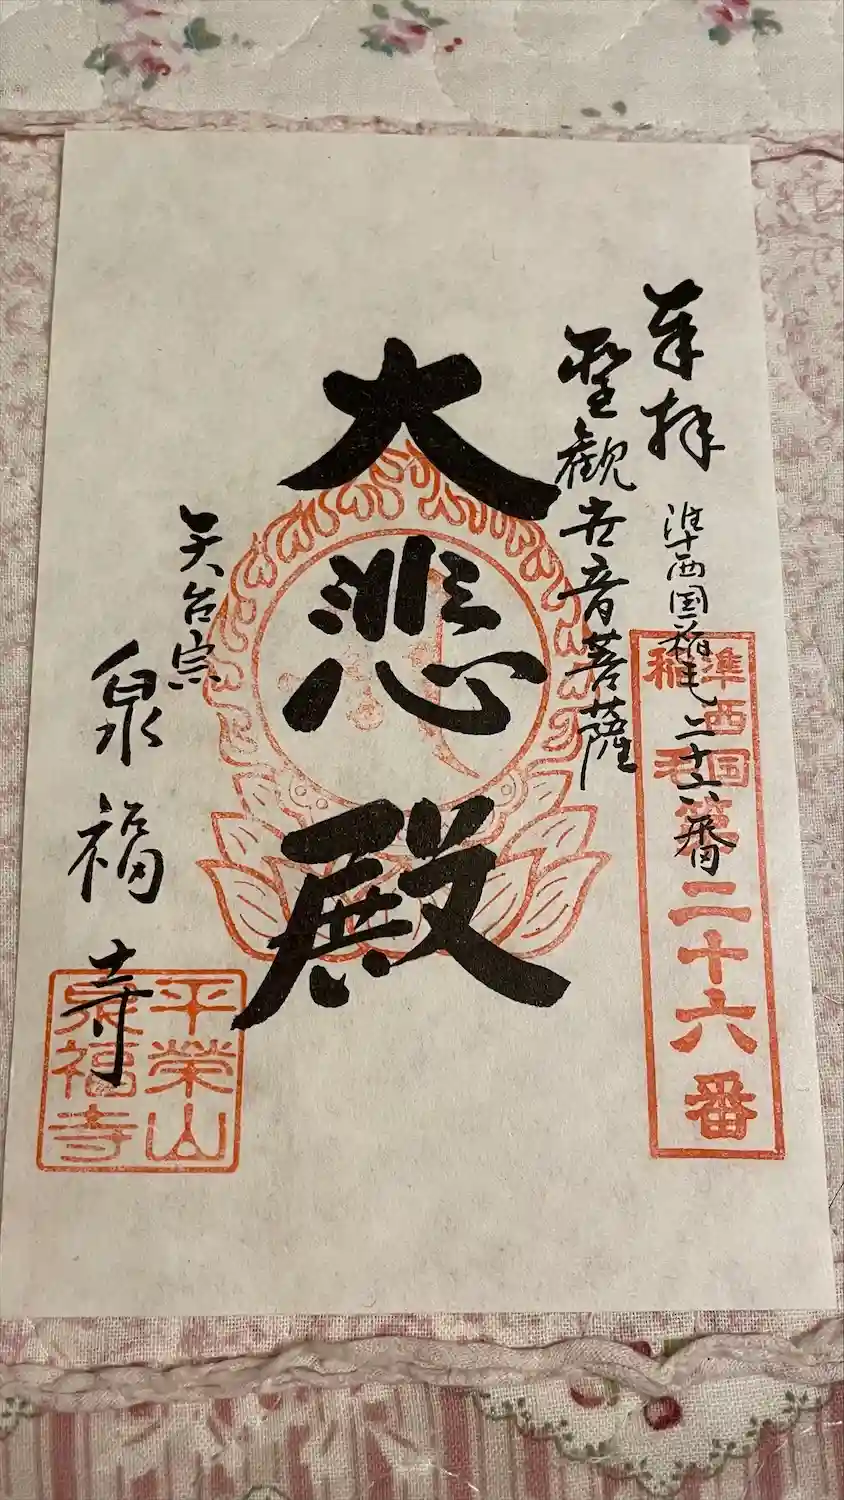 奉拝
準西国稲毛二十六番
準西国
稲毛
第二十六番
聖観世音菩薩
大悲殿
天台宗
泉福寺
平榮山
泉福寺